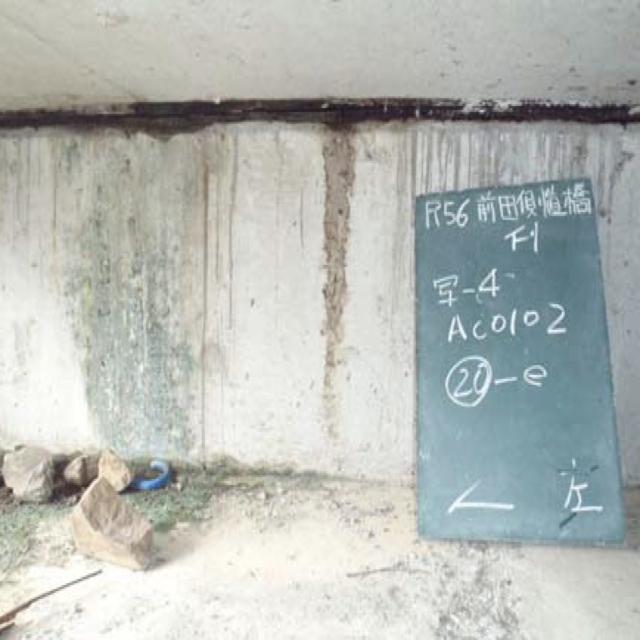 R56 前田側道橋
F1
写-4
Ac0102
⑳-e
左